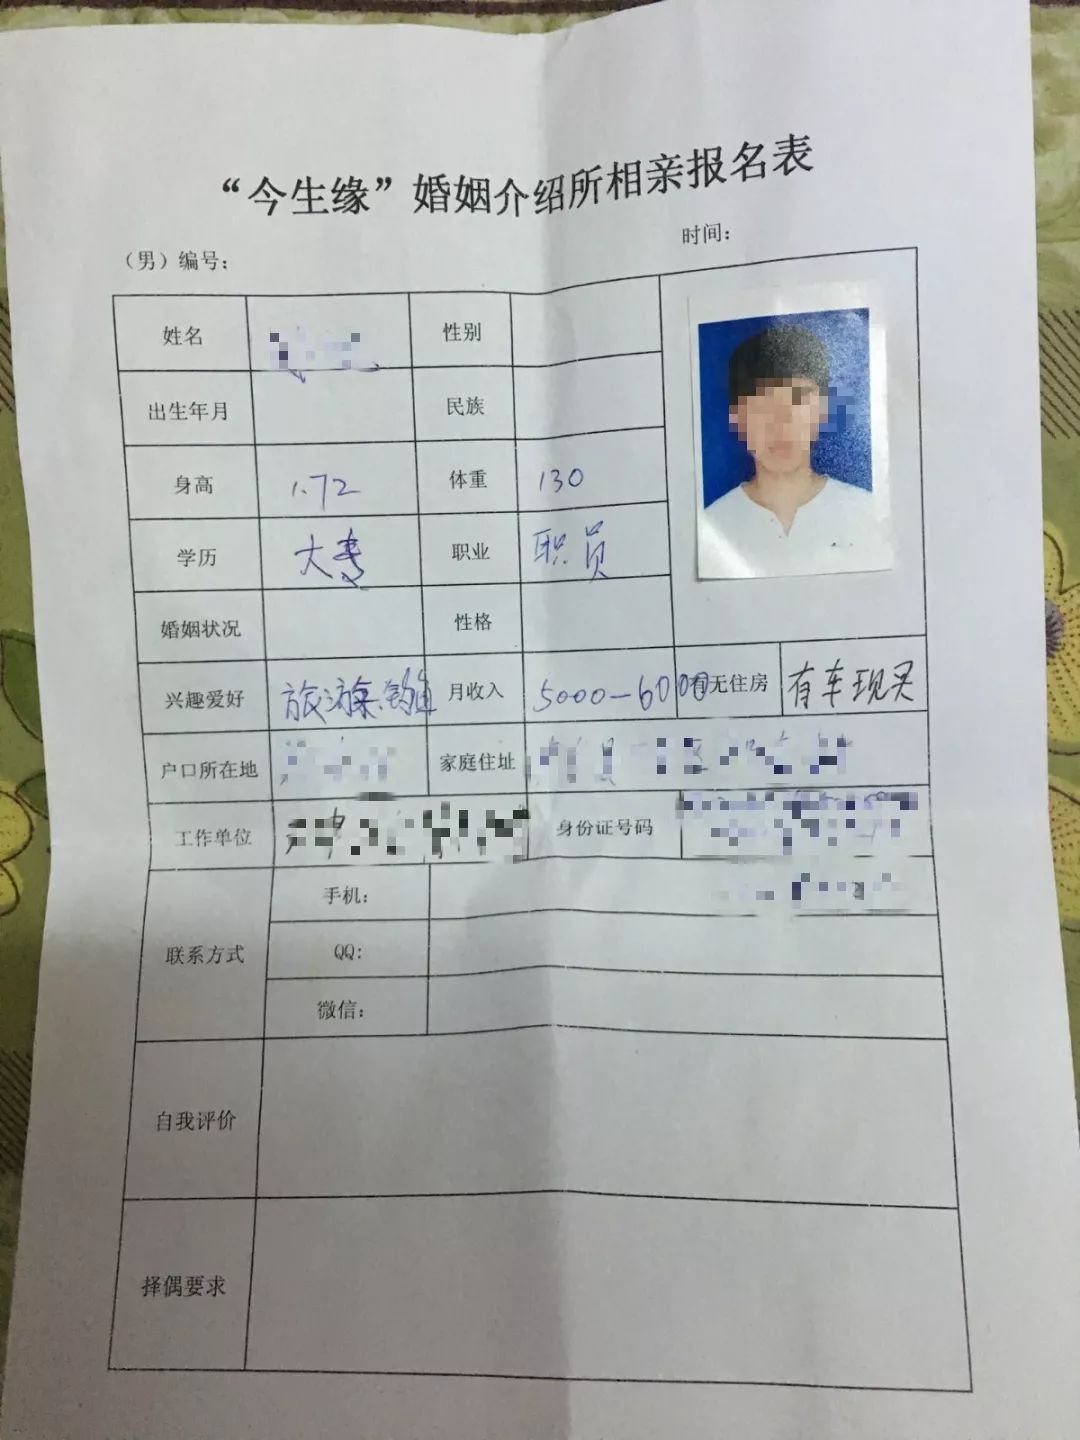 “今生缘”婚姻介绍所相亲报名表
（男）编号： 时间：
姓名 性别
出生年月 民族
身高 1.72 体重 130
学历 大专 职业 职员
婚姻状况 性格
兴趣爱好 旅游 钓鱼 月收入 5000-6000 有无住房 有车现买
户口所在地 家庭住址
工作单位 身份证号码
联系方式 手机：
QQ：
微信：
自我评价
择偶要求